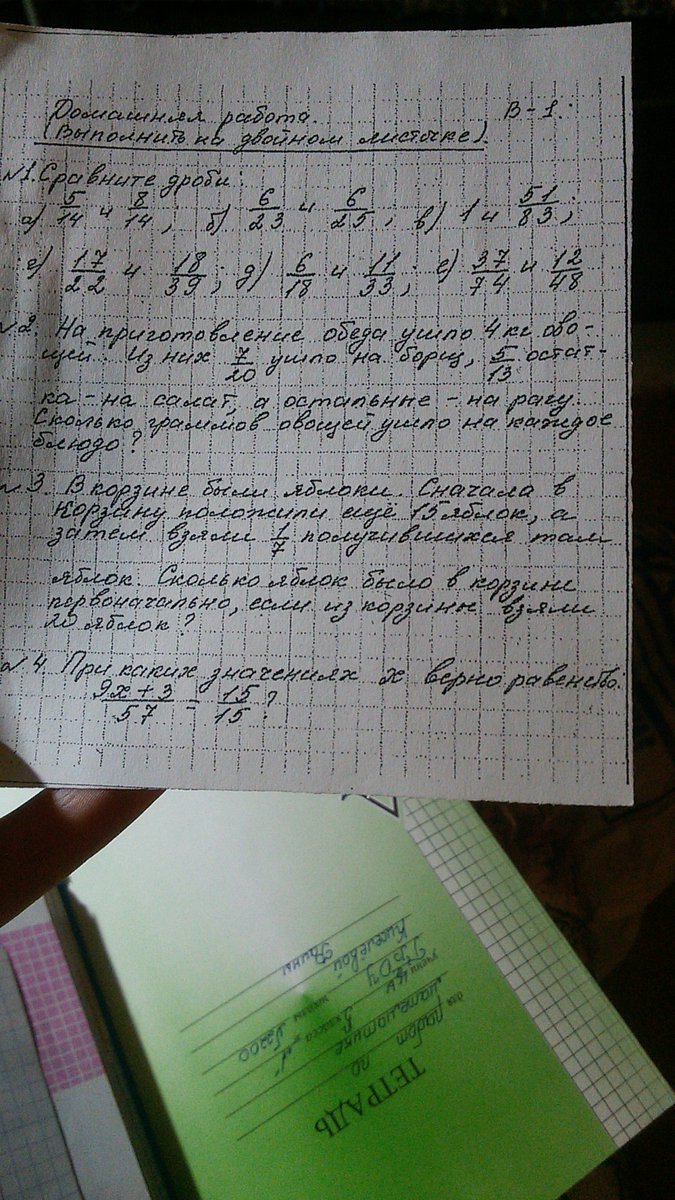 Домашняя работа. В-1.
(Выполнить на двойном листочке).
№1. Сравните дроби:
а) 5/14 и 8/14; б) 6/23 и 6/25; в) 1 и 51/83;
г) 17/22 и 18/39; д) 6/18 и 11/33; е) 37/74 и 12/48
№2. На приготовление обеда ушло 4 кг ово-
щей. Из них 7/20 ушло на борщ, 5/13 остат-
ка - на салат, а остальные - на рагу.
Сколько граммов овощей ушло на каждое
блюдо?
№3. В корзине были яблоки. Сначала в
корзину положили ещё 15 яблок, а
затем взяли 1/7 получившихся там
яблок. Сколько яблок было в корзине
первоначально, если из корзины взяли
20 яблок?
№4. При каких значениях x верно равенство:
9x+3/57 = 15/15?
ТЕТРАДЬ
для работ по
математике
класса
школы
учени
Киселевой